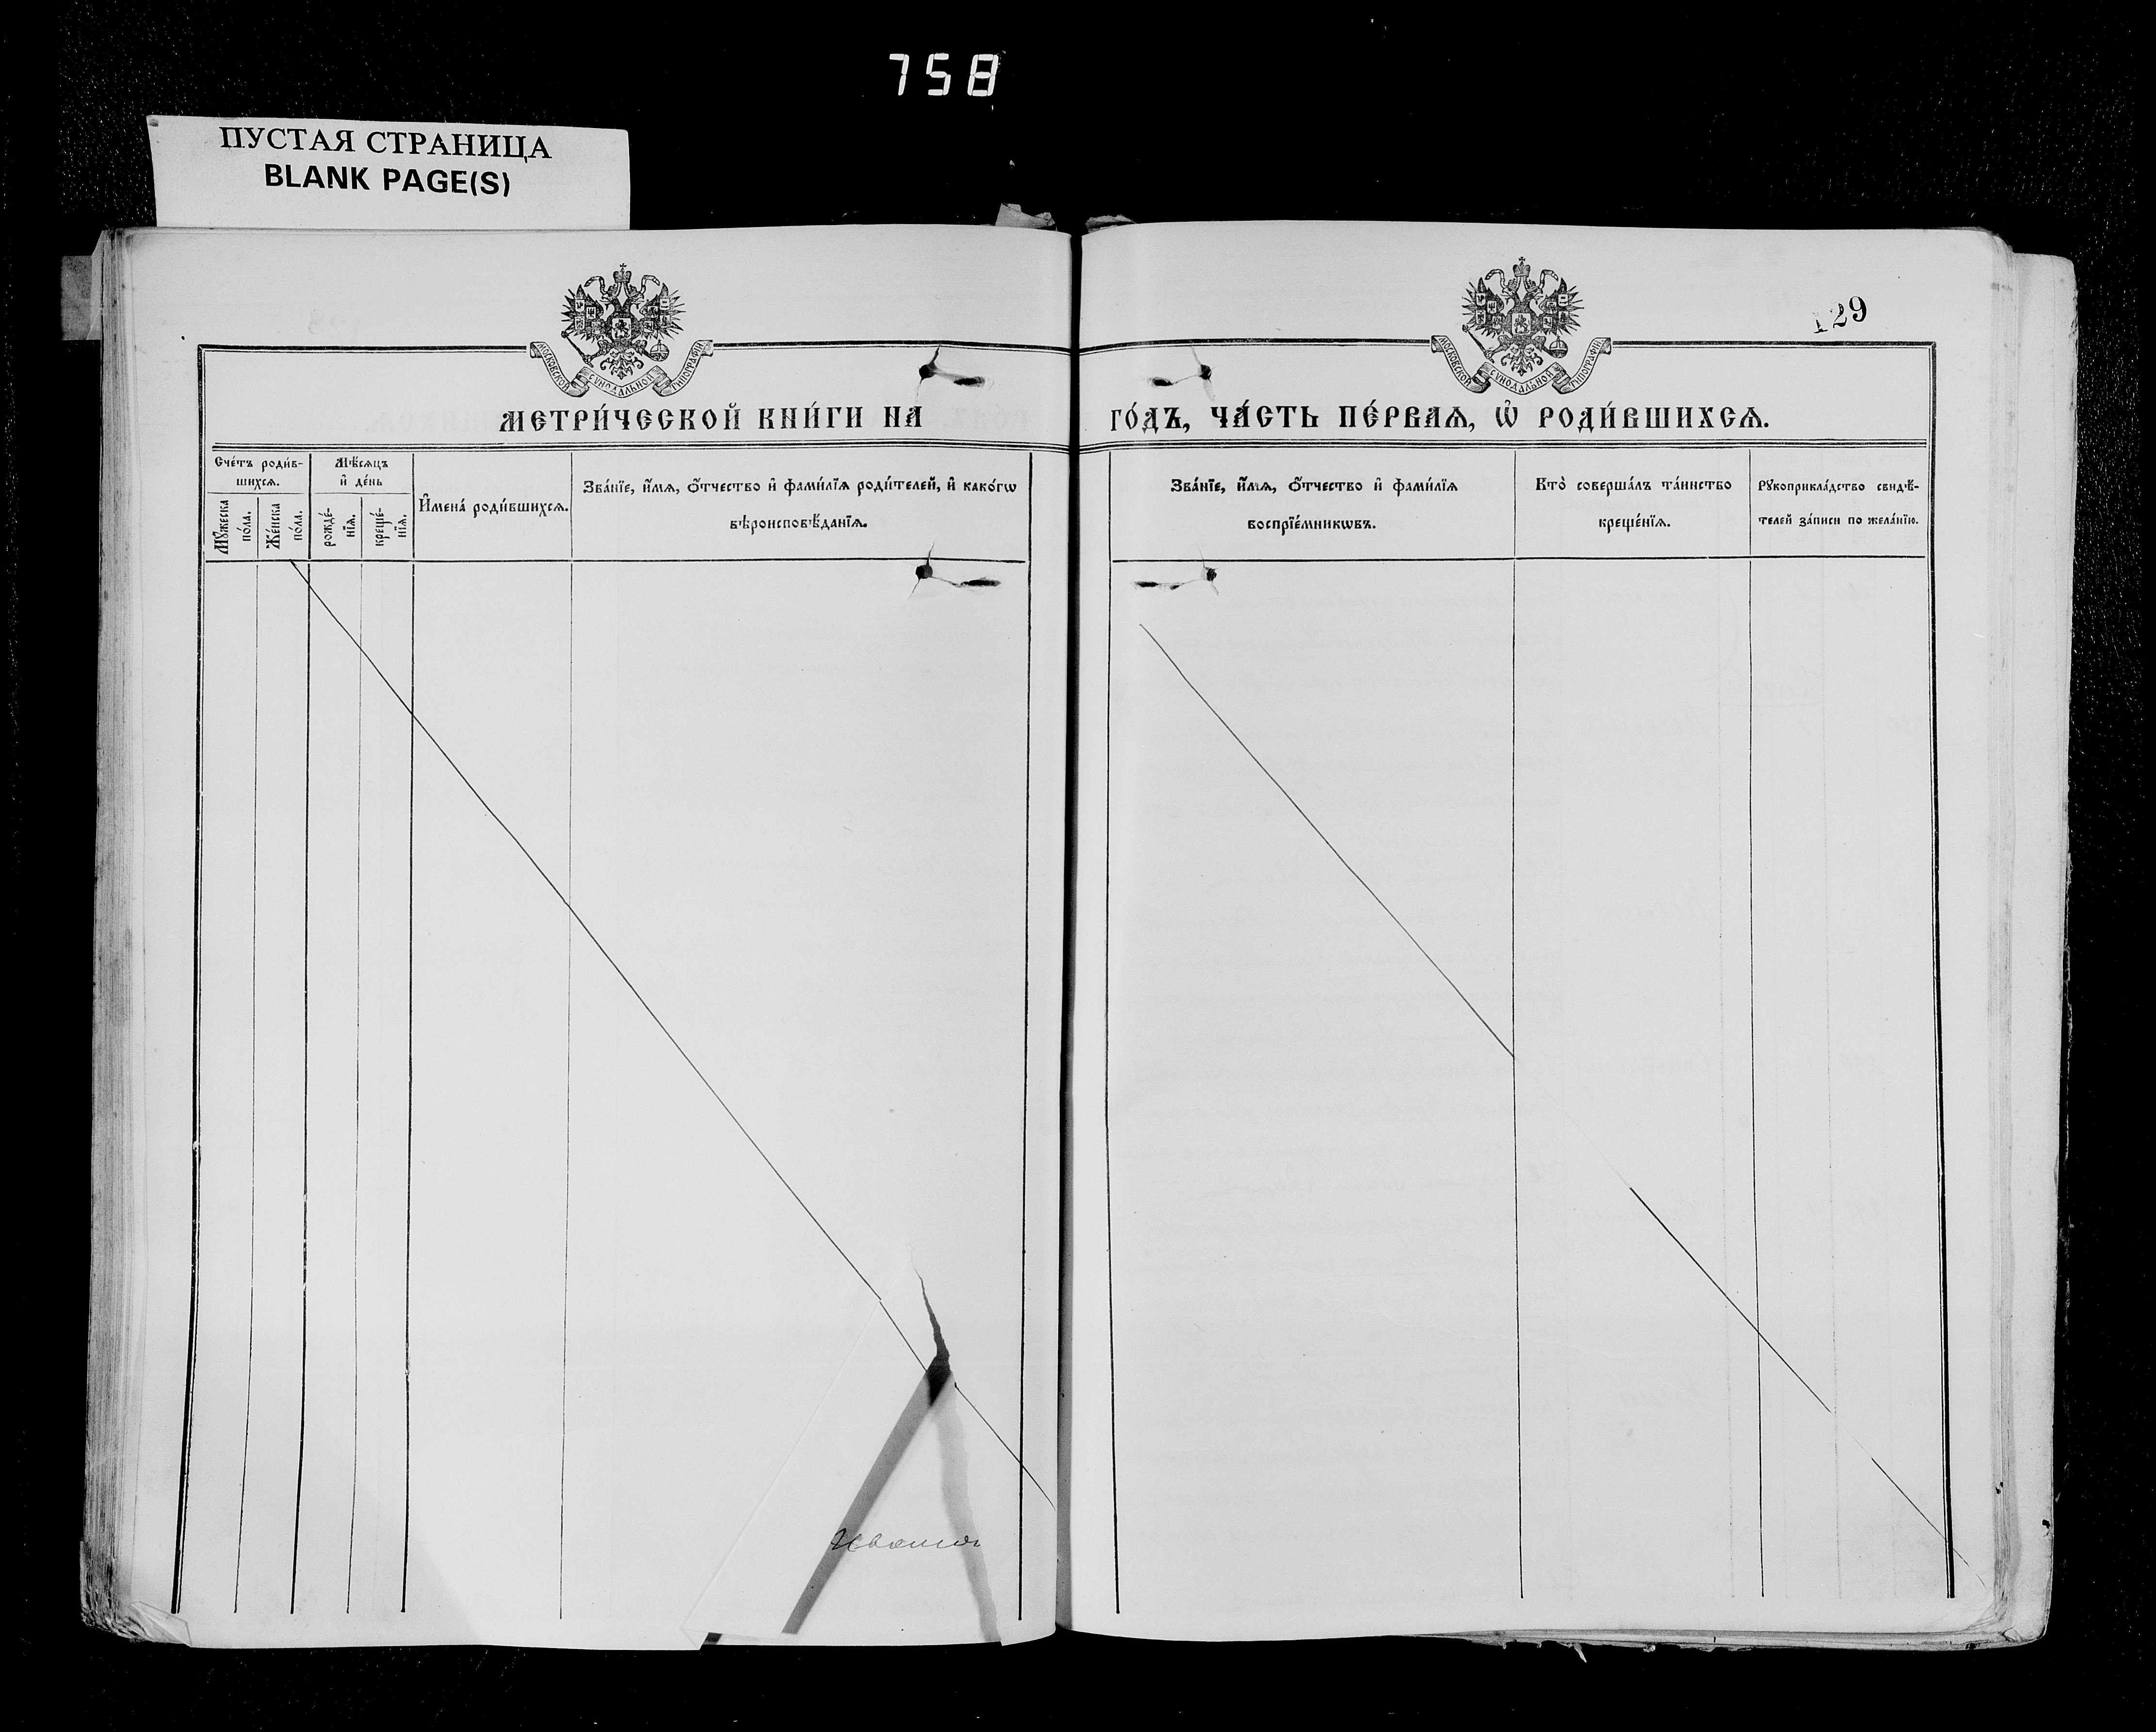 758
ПУСТАЯ СТРАНИЦА
BLANK PAGE(S)
129
МОСКОВСКОЙ СѴНОДАЛЬНОЙ ТИПОГРАФІИ
МОСКОВСКОЙ СѴНОДАЛЬНОЙ ТИПОГРАФІИ
МЕТРИ́ЧЕСКОЙ КНИ́ГИ НА ГО́ДЪ, ЧА́СТЬ ПЕ́РВАѦ, Ѡ҆ РОДИ́ВШИХСѦ.
Сче́тъ роди́в-
шихсѧ.
Мꙋ́жеска
по́ла.
Же́нска
по́ла.
Мѣ́сѧцъ
и҆ де́нь
рожде́-
нїѧ.
креще́-
нїѧ.
И҆мена̀ роди́вшихсѧ.
Зва́нїе, и҆́мѧ, ѻ҆́тчество и҆ фами́лїѧ роди́телей, и҆ како́гѡ
вѣроисповѣ́данїѧ.
Зва́нїе, и҆́мѧ, ѻ҆́тчество и҆ фами́лїѧ
воспрїе́мникѡвъ.
Кто̀ соверша́лъ та́инство
креще́нїѧ.
Рꙋкоприкла́дство свидѣ́-
телей за́писи по жела́нїю.